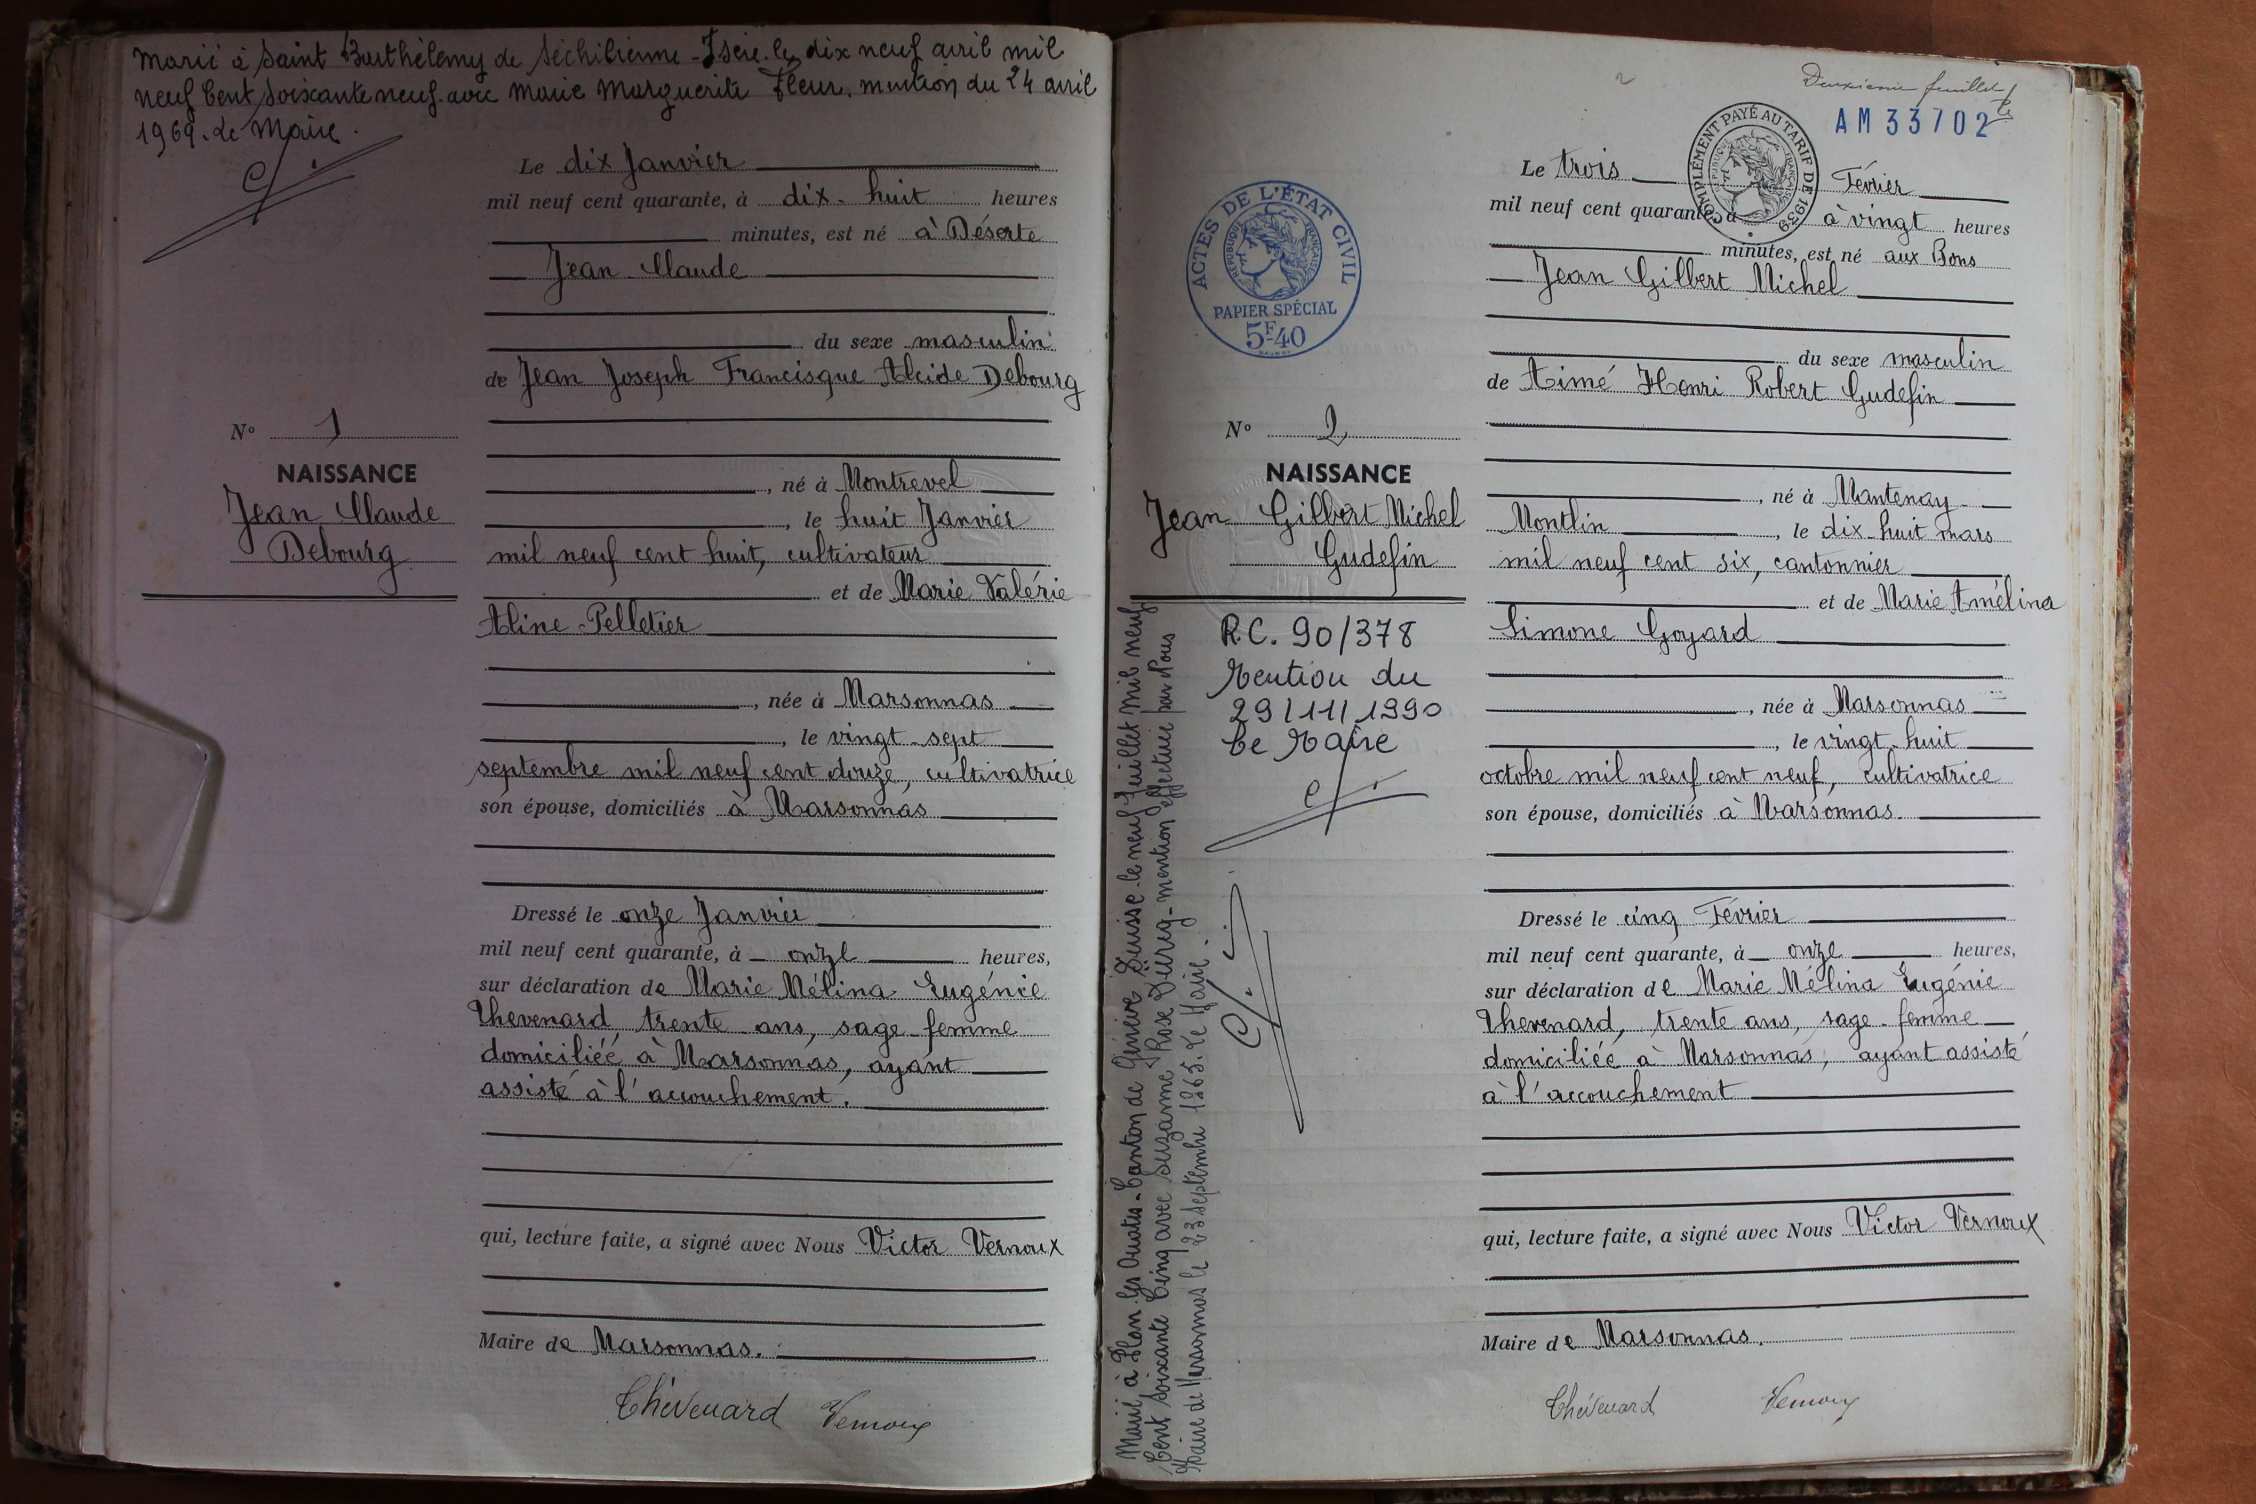 Marié à Saint Barthélemy de Séchilienne - Isère - le dix neuf avril mil
neuf Cent Soixante neuf. avec Marie Marguerite Fleur. mention du 24 avril
1969. Le Maire.
Le dix Janvier
mil neuf cent quarante, à dix-huit heures
minutes, est né à Déserte
Jean Claude
du sexe masculin
de Jean Joseph Francisque Alcide Debourg
N° 1
NAISSANCE
Jean Claude
Debourg
, né à Montrevel
, le huit Janvier
mil neuf cent huit, cultivateur
et de Marie Valérie
Aline Pelletier
, née à Marsonnas
, le vingt-sept
septembre mil neuf cent douze, cultivatrice
son épouse, domiciliés à Marsonnas
Dressé le onze Janvier
mil neuf cent quarante, à onze heures,
sur déclaration de Marie Mélina Eugénie
Thevenard, trente ans, sage-femme
domiciliée à Marsonnas, ayant
assisté à l'accouchement.
qui, lecture faite, a signé avec Nous Victor Vernoux
Maire de Marsonnas.
Thévenard Vernoux
Deuxième feuillet
AM 33702
COMPLÉMENT PAYÉ AU TARIF DE 1939
RÉPUBLIQUE FRANÇAISE
ACTES DE L'ÉTAT CIVIL
RÉPUBLIQUE FRANÇAISE
PAPIER SPÉCIAL
5F40
Le trois Février
mil neuf cent quarante, à à vingt heures
minutes, est né aux Bons
Jean Gilbert Michel
du sexe masculin
de Aimé Henri Robert Gudefin
N° 2
NAISSANCE
Jean Gilbert Michel
Gudefin
, né à Mantenay
Montlin, le dix-huit mars
mil neuf cent six, cantonnier
et de Marie Amélina
Simone Goyard
, née à Marsonnas
, le vingt-huit
octobre mil neuf cent neuf, cultivatrice
son épouse, domiciliés à Marsonnas.
Dressé le cinq Février
mil neuf cent quarante, à onze heures,
sur déclaration de Marie Mélina Eugénie
Thevenard, trente ans, sage-femme
domiciliée à Marsonnas, ayant assisté
à l'accouchement
qui, lecture faite, a signé avec Nous Victor Vernoux
Maire de Marsonnas.
Thévenard Vernoux
R.C. 90/378
Mention du
29/11/1990
Le Maire
Marié à Plan-les-Ouates - Canton de Genève Suisse - le neuf Juillet mil neuf
Cent Soixante Cinq avec Suzanne Rose - mention effectuée par Nous
Maire de Marsonnas le 23 Septembre 1965. Le Maire.